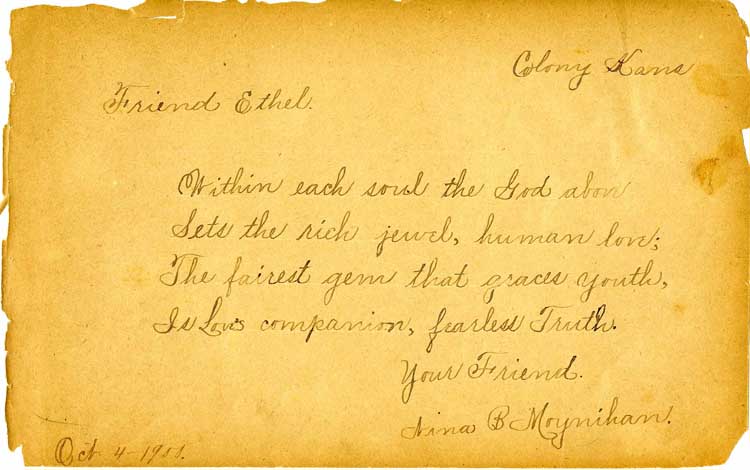 Colony Kans
Friend Ethel.
Within each soul the God above
Sets the rich jewel, human love;
The fairest gem that graces youth,
Is Love's companion, fearless Truth.
Your Friend.
Nina B Moynihan.
Oct 4-